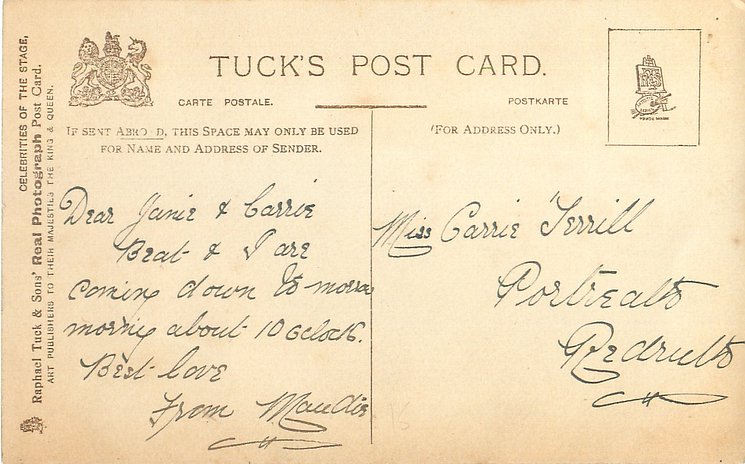 CELEBRITIES OF THE STAGE,
Raphael Tuck & Sons' Real Photograph Post Card.
ART PUBLISHERS TO THEIR MAJESTIES THE KING & QUEEN.
TUCK'S POST CARD.
CARTE POSTALE.
POSTKARTE
IF SENT ABROAD, THIS SPACE MAY ONLY BE USED
FOR NAME AND ADDRESS OF SENDER.
(FOR ADDRESS ONLY.)
Dear Janie & Carrie
Beat & I are
coming down to morrow
morning about 10 oclock.
Best love
From Maudie
Miss Carrie Terrill
Portreath
Redruth